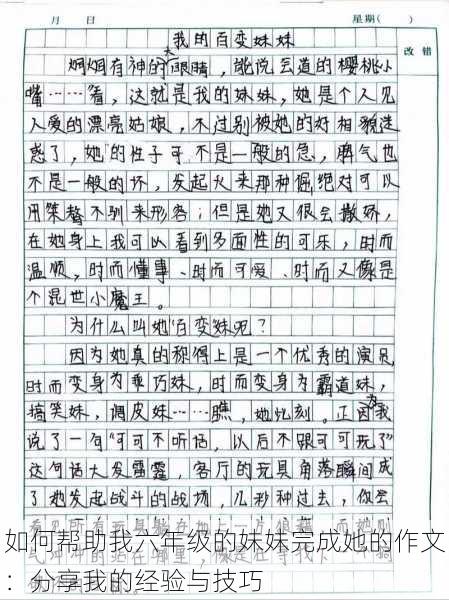 月 日 星期( )
改错
我的百变妹妹
炯炯有神的大眼睛，能说会道的樱桃小
嘴……看，这就是我的妹妹，她是个人见
人爱的漂亮姑娘，不过别被她的好相貌迷
惑了，她的性子可不是一般的急，脾气也
不是一般的坏，发起火来那种倔绝对可以
用桀骜不驯来形容；但是她又很会撒娇，
在她身上我可以看到多面性的可乐，时而
温顺，时而懂事、时而可爱、时而又像是
个混世小魔王。
为什么叫她"百变妹"呢？
因为她真的称得上是一个优秀的演员，
时而变身为乖巧妹，时而变身为霸道妹，
搞笑妹，调皮妹……瞧，她此刻。正因为我
说了一句"可可不听话，以后不跟可可玩了"
这句话大发雷霆，客厅的玩具角落瞬间成
了她发起战斗的战场，几秒种过去，你会
如何帮助我六年级的妹妹完成她的作文
：分享我的经验与技巧